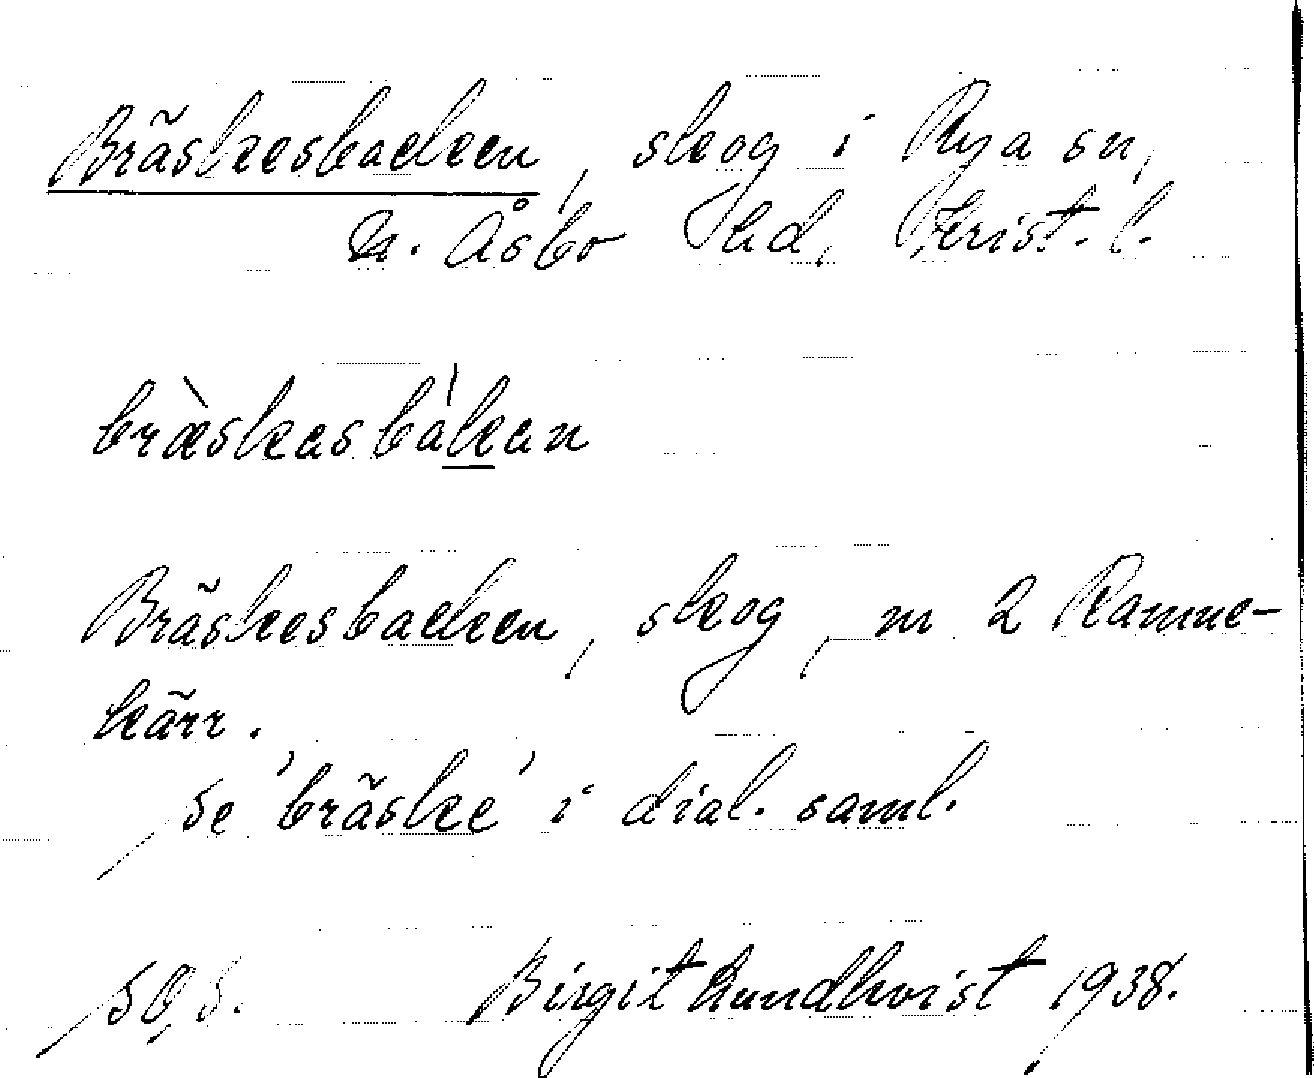 Bräskesbacken, skog i Rya sn,
N. Åsbo hd, Krist. l.
bræ̀skasbàkan
Bräskesbacken, skog, nr 2 Ramne-
kärr.
se 'bräske' i dial. saml.
Birgit Lundkvist 1938.